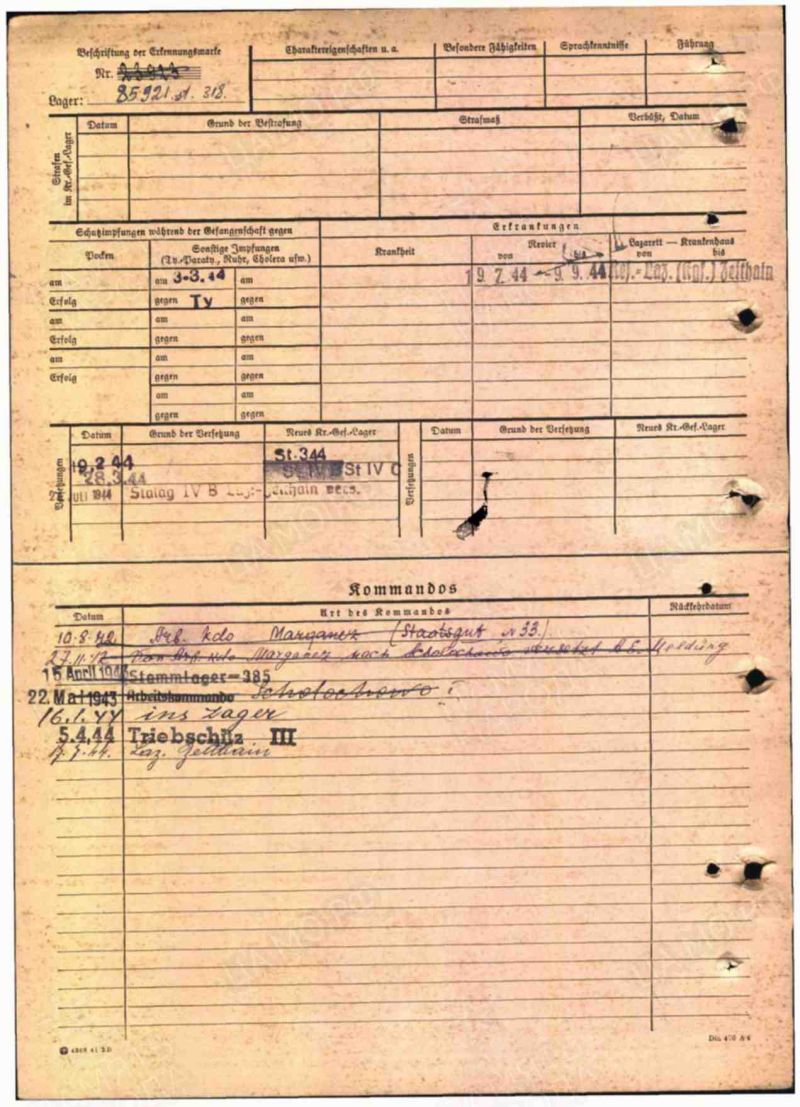 Beschriftung der Erkennungsmarke
Nr. 23923
Lager: 85921 st. 318.
Charaktereigenschaften u. a.
Besondere Fähigkeiten
Sprachkenntnisse
Führung
Strafen im Kr.-Gef.-Lager
Datum
Grund der Bestrafung
Strafmaß
Verbüßt, Datum
Schutzimpfungen während der Gefangenschaft gegen
Erkrankungen
Pocken
Sonstige Impfungen
(Ty.-Paraty., Ruhr, Cholera usw.)
Krankheit
Revier
von
bis
Lazarett — Krankenhaus
von bis
am
am 3-3.44
am
19.7.44 9.9.44 Res.-Laz. (Kgf.) Zeithain
Erfolg
gegen Ty
gegen
am
am
am
Erfolg
gegen
gegen
am
am
am
Erfolg
gegen
gegen
am
am
gegen
gegen
Versetzungen
Datum
Grund der Versetzung
Neues Kr.-Gef.-Lager
Versetzungen
Datum
Grund der Versetzung
Neues Kr.-Gef.-Lager
19.2.44 St.344
28.3.44 St IV B St IV C
Juli 1944 Stalag IV B Laz.-Zeithain vers.
Kommandos
Datum
Art des Kommandos
Rückkehrdatum
10.8.42. Arb. Kdo Marganez (Staatsgut N 33.)
27.11.42 Von Arb. Kdo Marganez nach Scholochowo versetzt A.E. Meldung
15 April 1943 Stammlager-385
22. Mai 1943 Arbeitskommando Scholochowo I.
16.1.44 ins Lager
5.4.44 Triebschüz III
7.44. Laz. Zeithain
4368 41 2 D
Din 476 A 4
ЦАМО РФ